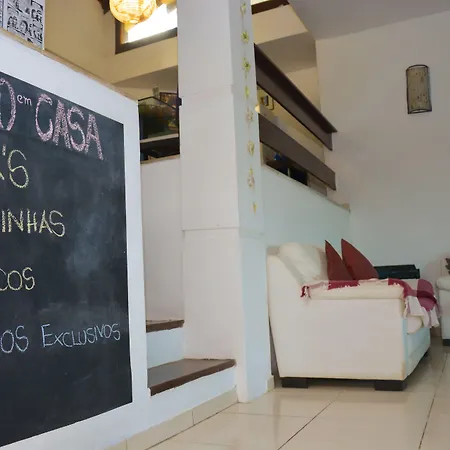 O em CASA
'S
INHAS
COS
OS EXCLUSIVOS